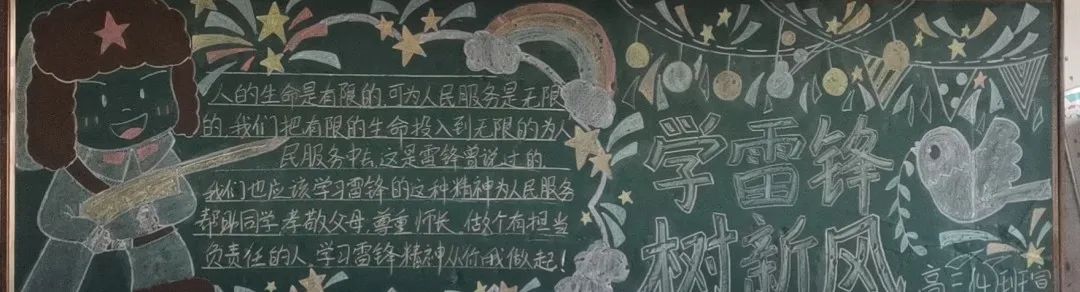 人的生命是有限的,可为人民服务是无限
的,我们把有限的生命投入到无限的为人
民服务中去,这是雷锋曾说过的,
我们也应该学习雷锋的这种精神为人民服务
帮助同学,孝敬父母,尊重师长,做个有担当
负责任的人,学习雷锋精神从你我做起!
学雷锋
树新风
高三14班宣